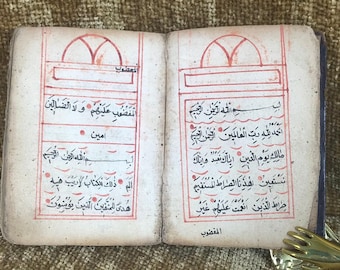 بسم الله الرحمن الرحيم
الحمد لله رب العالمين الرحمن الرحيم
ملك يوم الدين اياك نعبد واياك
نستعين اهدنا الصراط المستقيم
صراط الذين انعمت عليهم غير
المغضوب
المغضوب
المغضوب عليهم ولا الضالين
امين
بسم الله الرحمن الرحيم
الم ذلك الكتاب لا ريب فيه
هدى للمتقين الذين يؤمنون